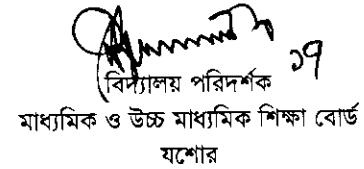 ১৭
(বিদ্যালয় পরিদর্শক
মাধ্যমিক ও উচ্চ মাধ্যমিক শিক্ষা বোর্ড
যশোর